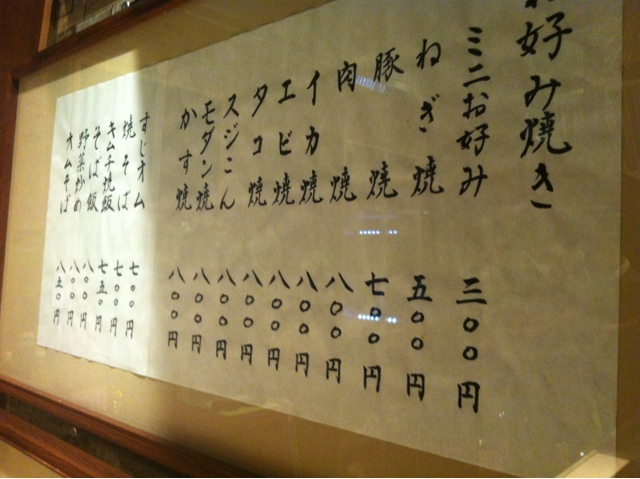 お好み焼き
ミニお好み 三〇〇円
ねぎ焼 五〇〇円
豚焼 七〇〇円
肉焼 八〇〇円
イカ焼 八〇〇円
エビ焼 八〇〇円
タコ焼 八〇〇円
スジこん 八〇〇円
モダン焼 八〇〇円
かす焼 八〇〇円
すじオム 七〇〇円
焼そば 七〇〇円
キムチ焼飯 七五〇円
そば飯 八〇〇円
野菜炒め 八〇〇円
オムそば 八五〇円